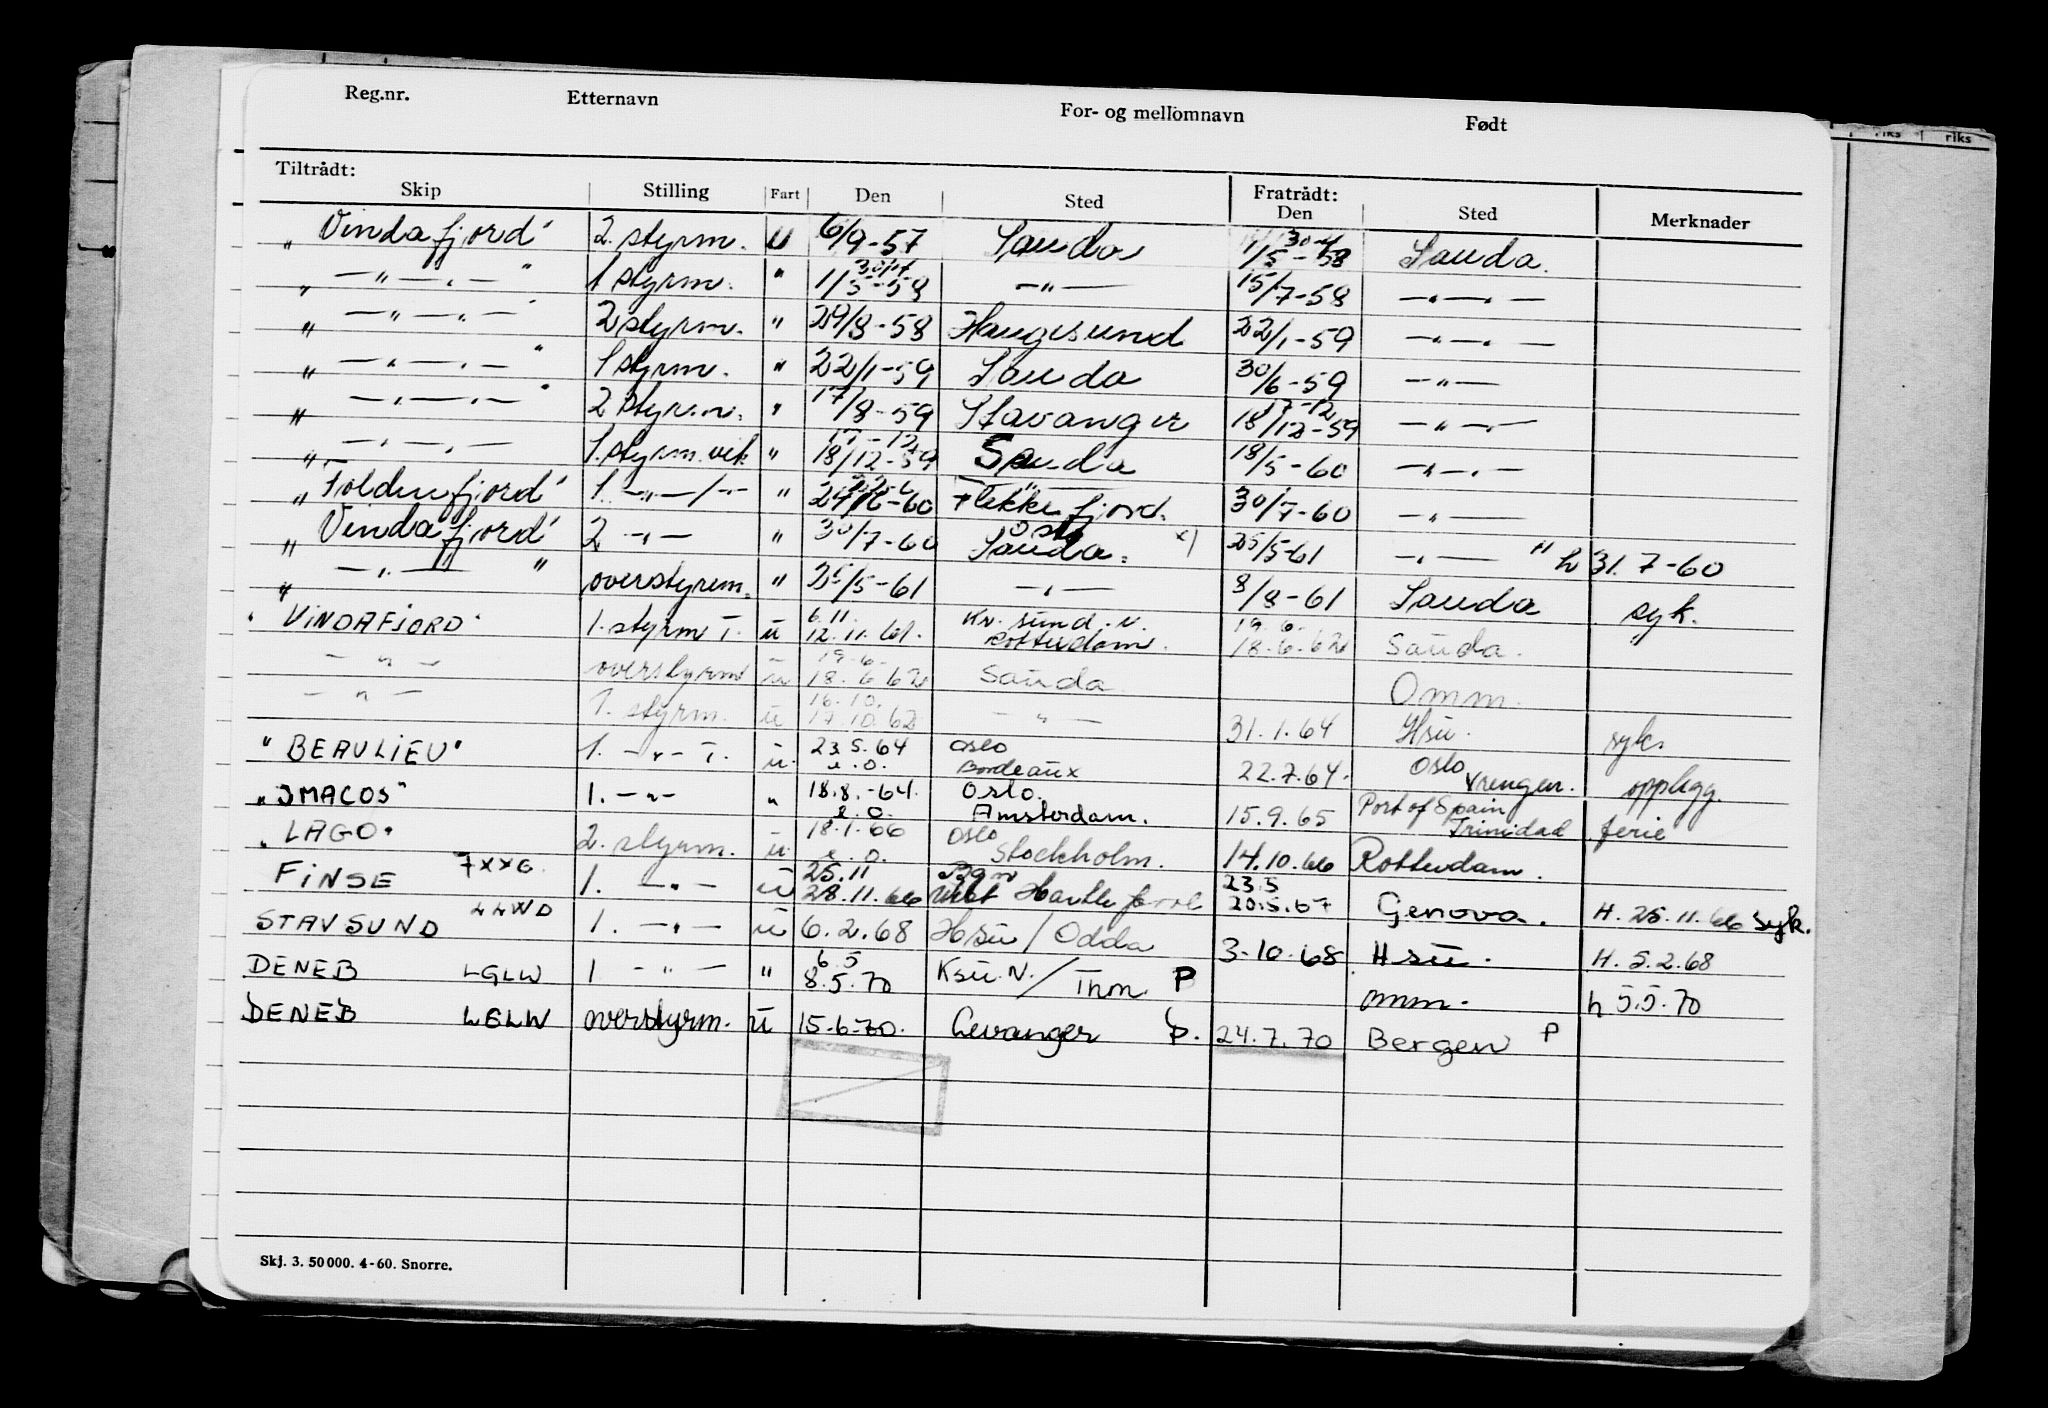 Reg.nr. Etternavn For- og mellomnavn Født
Tiltrådt: Fratrådt:
Skip Stilling Fart Den Sted Den Sted Merknader
"Vindafjord" 2. styrm. U 6/9-57 Sauda 30-4 1/5-58 Sauda.
" —"—"— " 1 styrm. " 30/4 1/5-58 —"— 15/7-58 —"—"—
" —"—"— " 2 styrm. " 29/8-58 Haugesund 22/1-59 —"—"—
" —"—"— " 1 styrm. " 22/1-59 Sauda 30/6-59 —"—
" —"—"— " 2 styrm. " 17/8-59 Stavanger 17-12 18/12-59 —"—
" —"—"— 1. styrm. vik " 17-12 18/12-59 Sauda 18/5-60 —"—"—
"Foldenfjord" 1. —"—/—"— " 24/6-60 Flekkefjord. 30/7-60 —"—
"Vindafjord" 2 —"— " 30/7-60 Oslo Sauda. x) 25/5-61 —"— " h 31.7-60
" —"— " overstyrm. " 25/5-61 —"— 8/8-61 Sauda syk.
"VINDAFJORD" 1. styrm I. u 6.11 12.11.61. Kr. sund. N. Rotterdam. 19.6. 18.6.62 Sauda. "
— " — overstyrm u 19.6. 18.6.62 Sauda Omm.
— " — 1. styrm. u 16.10. 17.10.62 — " — 31.1.64 Hsu. syk.
"BEAULIEU" 1. —"— I. u. 23.5.64 e.o. Oslo Bordeaux 22.7.64. Oslo Vrengen. opplegg.
"IMACOS" 1. —"— " 18.8.-64. e.o. Oslo. Amsterdam. 15.9.65 Port of Spain Trinidad ferie
"LAGO" 2. styrm. u. 18.1.66 e.o. Oslo Stockholm. 14.10.66 Rotterdam.
FINSE 1. —"— u 25.11 28.11.66 Bgn West Hartlepool 23.5 20.5.67 Genova. H. 25.11.66 syk.
STAVSUND LLWD 1. —"— u 6.2.68 Hsu / Odda 3-10.68 Hsu. H. 5.2.68
DENEB LGLW 1 —"— " 6.5 8.5.70 Ksu. N. / Thm. P omm. h 5.5.70
DENEB LGLW overstyrm. u 15-6-70. Levanger P. 24.7.70 Bergen P
Skj. 3. 50 000. 4-60. Snorre.
riks riks